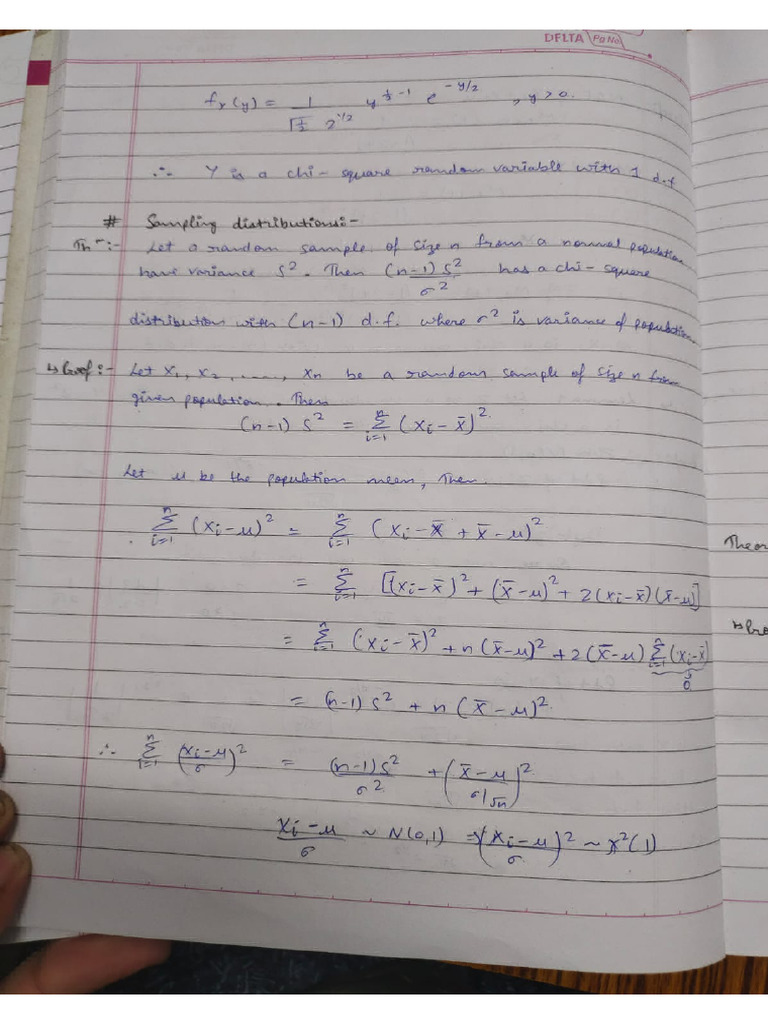 DELTA Pg No.
f_Y(y) = 1/(√(1/2) 2^{1/2}) y^{1/2 - 1} e^{-y/2} , y > 0.
∴ Y is a chi-square random variable with 1 d.f
# Sampling distributions:-
Thm:- Let a random sample of size n from a normal population
have variance S². Then (n-1)S²/σ² has a chi-square
distribution with (n-1) d.f. where σ² is variance of population
↳ Proof:- Let X₁, X₂, ....., Xn be a random sample of size n from
given population. Then
(n-1) S² = Σ_{i=1}^{n} (Xi - X̄)²
Let μ be the population mean, Then
Σ_{i=1}^{n} (Xi - μ)² = Σ_{i=1}^{n} (Xi - X̄ + X̄ - μ)²
= Σ_{i=1}^{n} [(Xi - X̄)² + (X̄ - μ)² + 2(Xi - X̄)(X̄ - μ)]
= Σ_{i=1}^{n} (Xi - X̄)² + n(X̄ - μ)² + 2(X̄ - μ) Σ_{i=1}^{n} (Xi - X̄)
0
= (n-1) S² + n(X̄ - μ)²
∴ Σ_{i=1}^{n} ((Xi - μ)/σ)² = (n-1)S²/σ² + ((X̄ - μ)/(σ/√n))²
(Xi - μ)/σ ~ N(0,1) ⇒ ((Xi - μ)/σ)² ~ χ²(1)
Theor